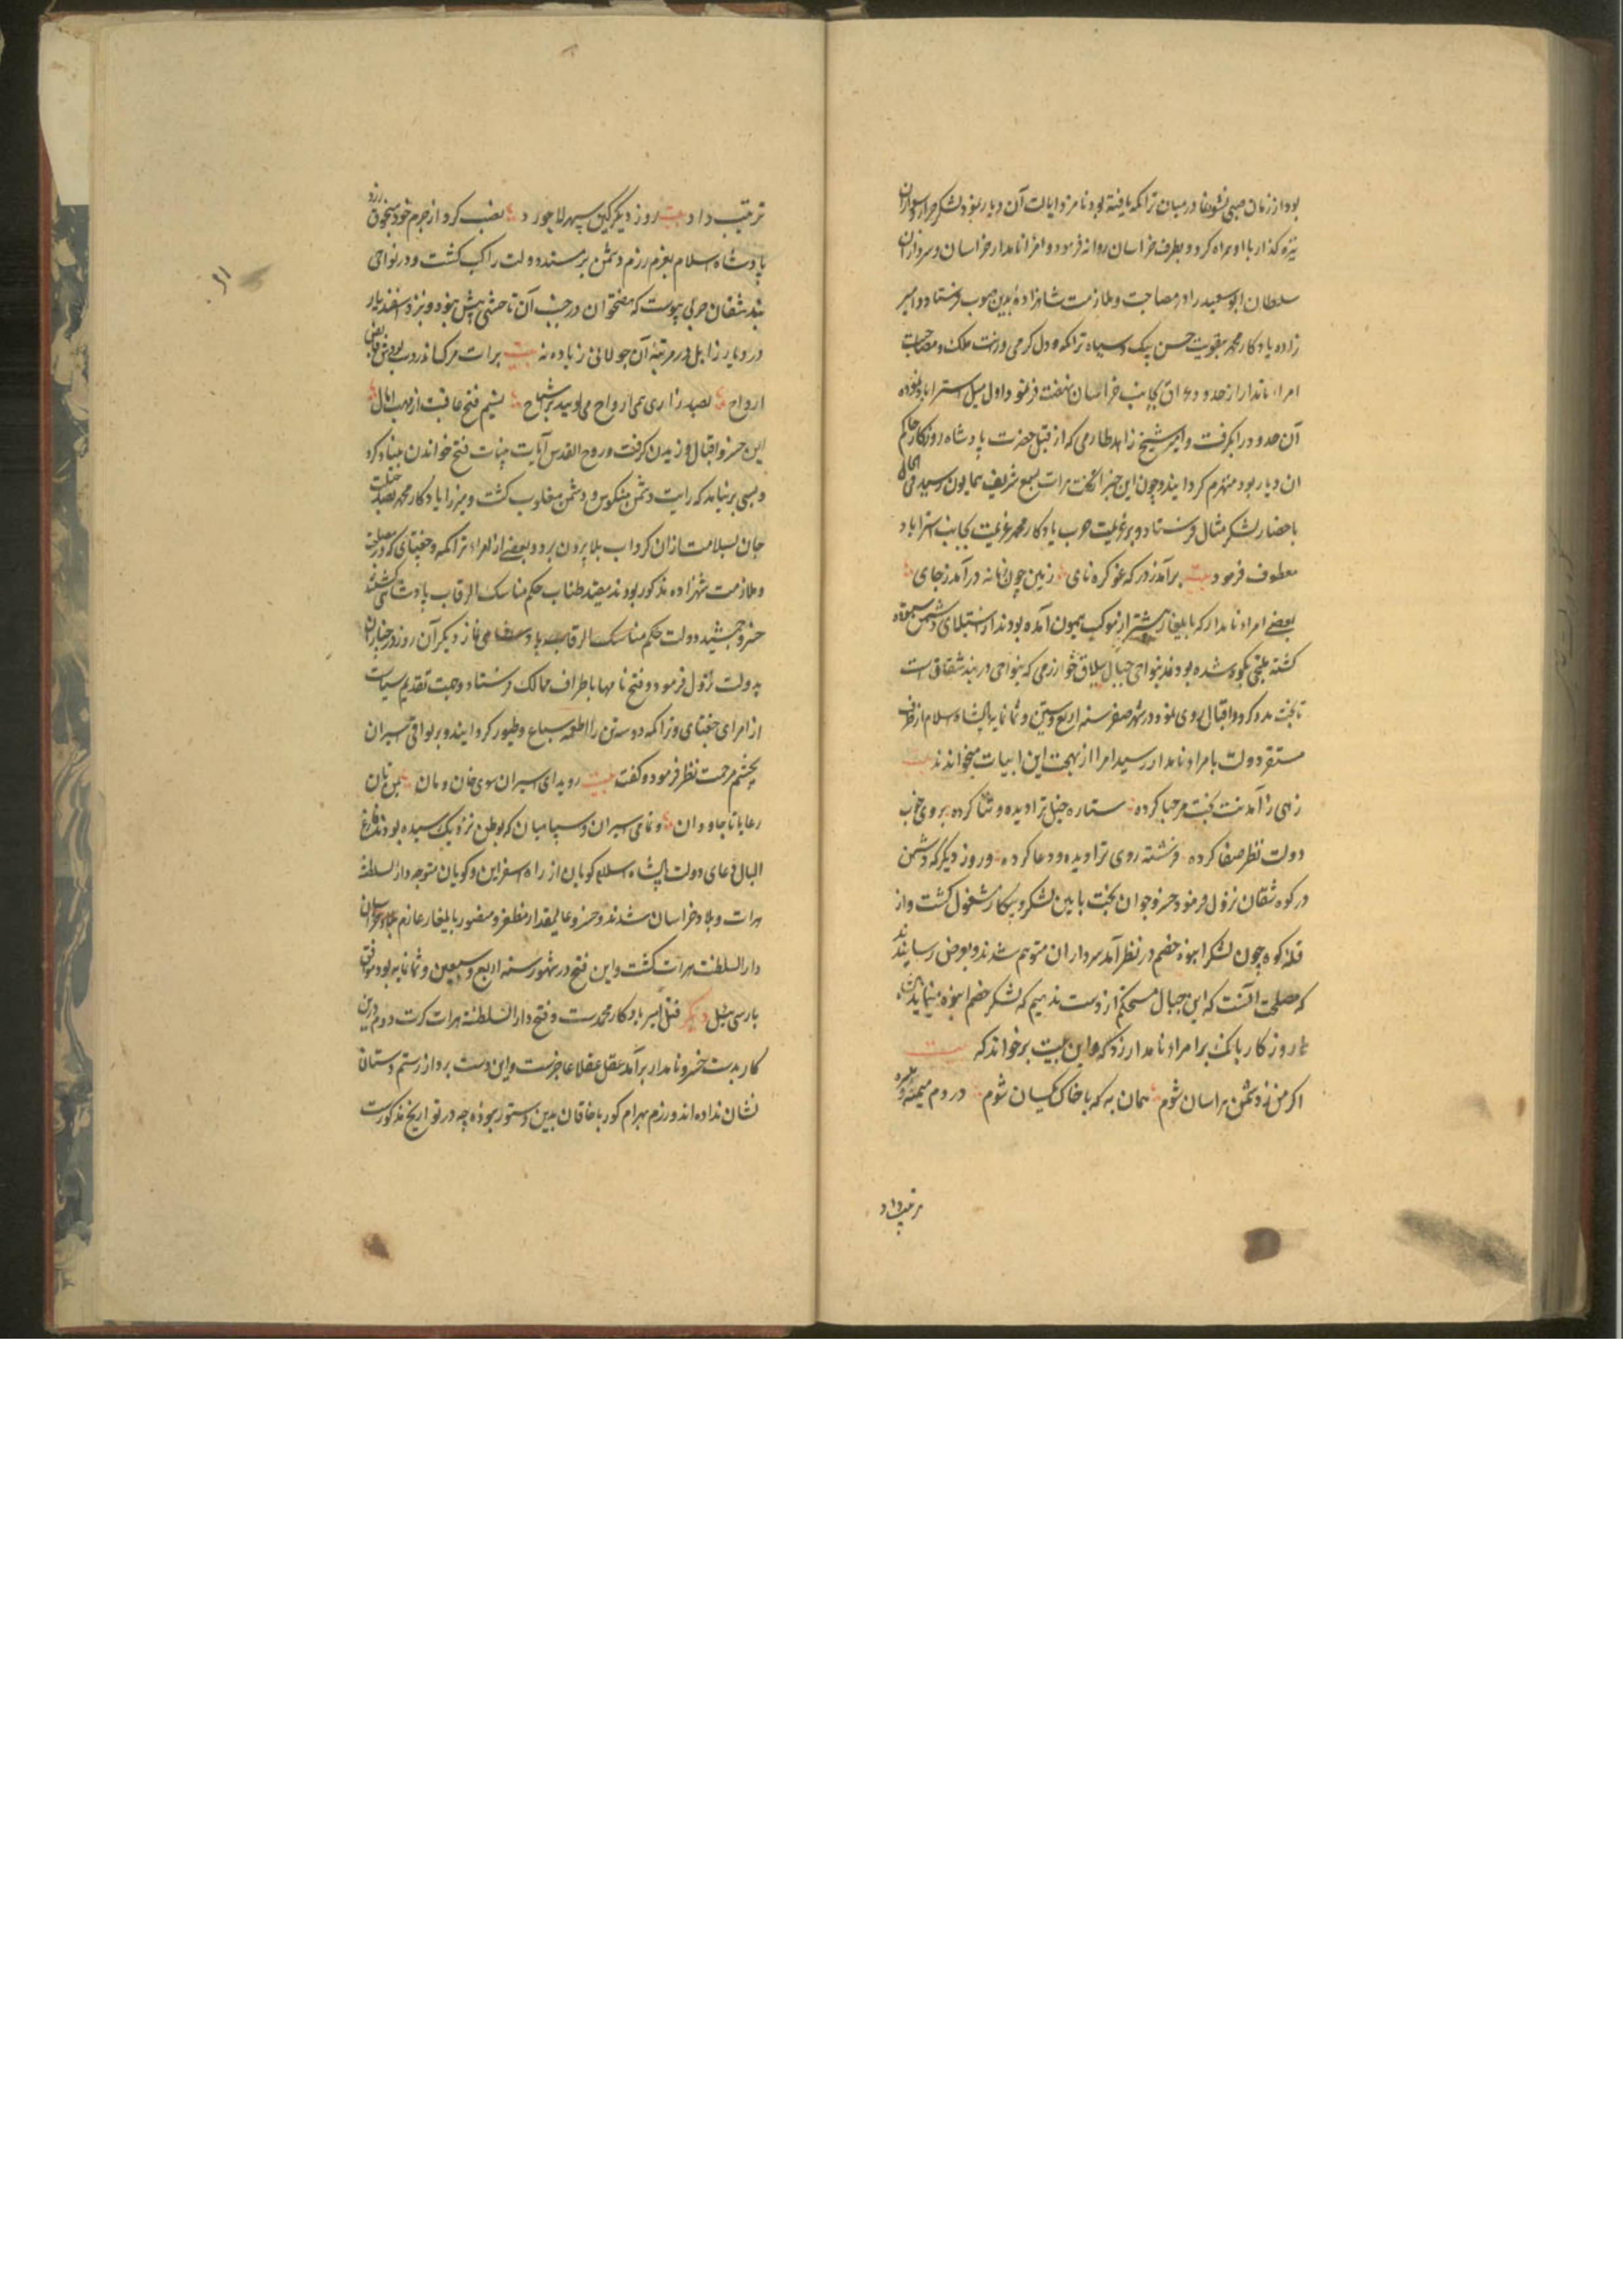 بود از زمان صبی نشوونما در میان تراکمه یافته بود نامزد ایالت آن دیار نمود و لشکر جرار و سواران
نیزه گذار با او همراه کرد و بطرف خراسان روانه فرمود و امراء نامدار خراسان و سرداران
سلطان ابوسعید را در مصاحبت و ملازمت شاهزاده بدین صوب فرستاد و امیر
زاده یادکار محمد بتقویت حسن بیک و سپاه تراکمه و دل کرمی وراثت ملک و مصاحبت
امراء نامدار از حدود عراق بجانب خراسان نهضت فرمود و اول میل استراباد نموده
آن حدود را بگرفت و امیر شیخ زاهد طارمی که از قبل حضرت پادشاه روزگار حاکم
ان دیار بود منهزم کردانیده و چون این خبر از تخت هرات بسمع شریف همایون رسید فی الحال
باحضار لشکر مثال فرستاد و بر عزیمت حرب یادکار محمد عزیمت بجانب استراباد
معطوف فرمود بیت برآمد ز درکه غو کره نای زمین چون زمانه درآمد ز جای
بعضی امراء نامدار که بایلغار پیشتر از موکب همیون آمده بودند از استیلای دشمن
کشته ملتجی بکوه شده بودند بنواحی جبال ییلاق خوارزمی که بنواحی دربند شقانست
تا بخت مدد کرد و اقبال روی نمود و در شهر صفر سنه اربع و سبعین و ثمانمایه پادشاه اسلام از
مستقر دولت بامراء نامدار رسید امرا از بهجت این ابیات میخواندند بیت
زهی ز آمدنت بخت مرحبا کرده ستاره خیل ترا دیده و ثنا کرده بروی خوب
دولت نظر صفا کرده فرشته روی ترا دیده و دعا کرده و روز دیگر که دشمن
در کوه شقان نزول فرمود خسرو جوان بخت بایین لشکر و پیکار مشغول کشت و از
قله کوه چون لشکر انبوه خصم در نظر آمد سرداران متوهم شدند و بعرض رسانیدند
که مصلحت آنست که این جبال مستحکم از دست ندهیم که لشکر خصم انبوه مینماید
روزکار بانک بر امراء نامدار زد که و این بیت برخواند که بیت
اکر من ز دشمن هراسان شوم همان به که با خاک یکسان شوم در دم میمنه و میسره
ترتیب داد
ترتیب داد بیت روز دیگر کین سپهر لاجورد نصب کرد از جرم خود منجوق زرد
پادشاه اسلام بعزم رزم دشمن بر سمند دولت راکب کشت و در نواحی
بند شقان حربی پیوست که هفتخوان در جنب آن تاختنی بیش نبود و نبرد اسفندیار
در دیار زابل در مرتبهٔ آن جولانی زیاده نه بیت برات مرک
ارواح بصد زاری همی ارواح می نسیم فتح عاقبت از مهب امال
این خسرو اقبال وزیدن کرفت و روح القدس آیات بینات فتح خواندن بنیاد کرد
و بسی برنیامد که رایت دشمن منکوس و دشمن مغلوب کشت و میرزا یادکار محمد بصد حیلت
جان بسلامت از ان کرداب بلا بیرون برد و بعضی از امراء تراکمه و جغتای که در مصاحبت
و ملازمت شهزاده مذکور بودند مقید طناب حکم مناسک الرقاب پادشاهی کشتند
خسرو جمشید دولت حکم مناسک الرقاب نماز دیگر آن روز در
بدولت نزول فرمود و فتح نامها باطراف ممالک فرستاد و جهت تقدیم سیاست
از امرای جغتای و تراکمه دو سه تن را طعمه سباع و طیور کردانیند و بر بواقی اسیران
بچشم مرحمت نظر فرمود و گفت بیت روید ای اسیران سوی خان و مان
رعایا تا جاودان و تمامی اسیران و سپاهیان که بوطن نزدیک رسیده بودند فارغ
البال دعای دولت پادشاه اسلام کویان از راه اسفراین و کویان متوجه دار السلطنهٔ
هرات و بلاد خراسان شدند و خسرو عالیمقدار مظفر و منصور بایلغار عازم بلاد خراسان
دار السلطنت هرات کشت و این فتح در شهور سنه اربع و سبعین و ثمانمایه بود موافق
بارس ئیل دیکر قتل امیر یادکار محمدست و فتح دار السلطنه هرات کرت دوم و این
کار بدست خسرو نامدار برآمد عقل عقلا عاجزست و این دست برد از رستم دستان
نشان نداده اند و رزم بهرام کور با خاقان بدین دستور نبوده چه در تواریخ مذکورست